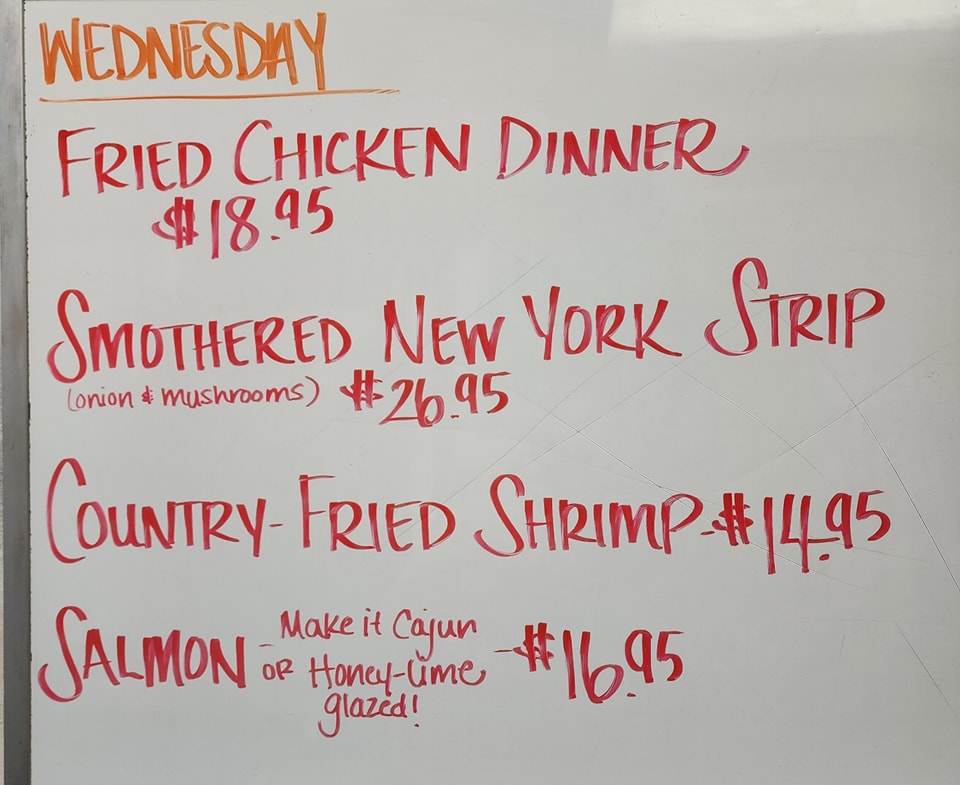 WEDNESDAY
FRIED CHICKEN DINNER
$18.95
SMOTHERED NEW YORK STRIP
(onion & mushrooms) $26.95
COUNTRY-FRIED SHRIMP-$14.95
SALMON - Make it Cajun
OR Honey-Lime
glazed! -$16.95